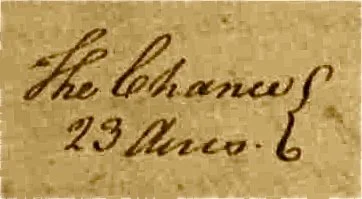 The Chance }
23 Acres.